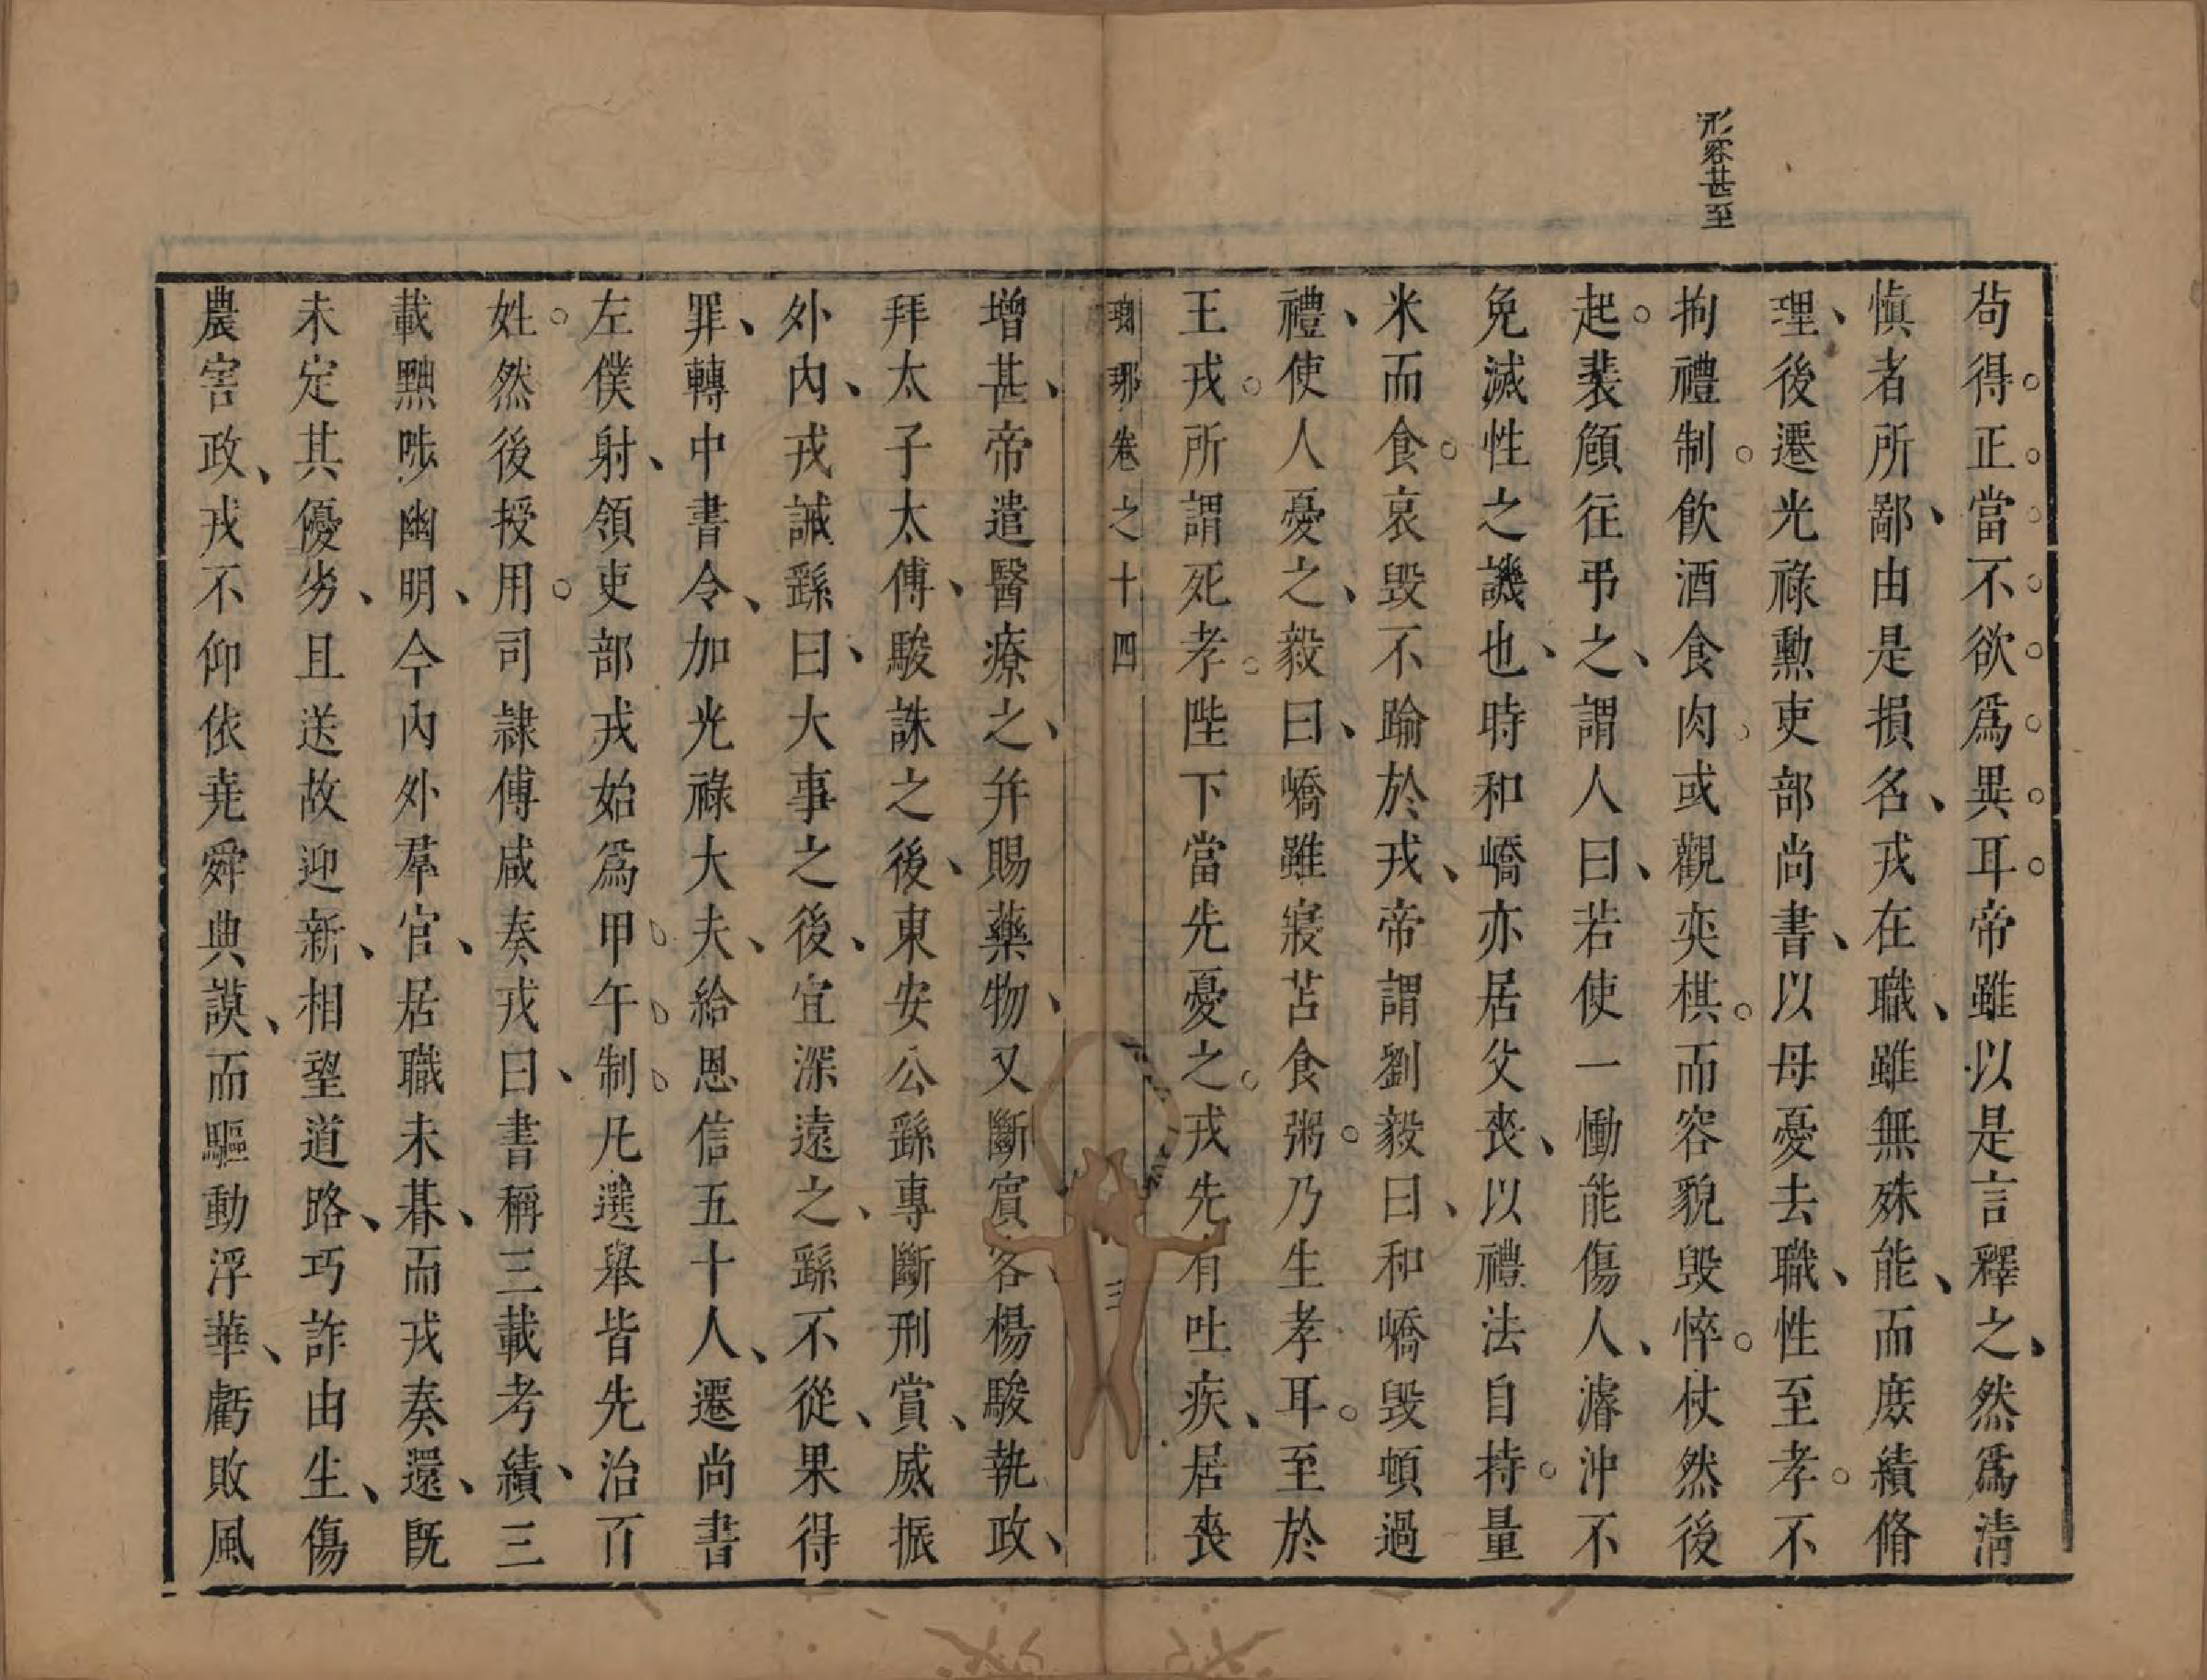 形容甚至
苟得正當不欲爲異耳帝雖以是言釋之然爲淸
愼者所鄙由是損名戎在職雖無殊能而庶績脩
理後遷光祿勲吏部尚書以母憂去職性至孝不
拘禮制飮酒食肉或觀奕棋而容貌毁悴杖然後
起裴頠往弔之謂人曰若使一慟能傷人濬沖不
免滅性之譏也時和嶠亦居父喪以禮法自持量
米而食哀毁不踰於戎帝謂劉毅曰和嶠毁頓過
禮使人憂之毅曰嶠雖寢苫食粥乃生孝耳至於
王戎所謂死孝陛下當先憂之戎先有吐疾居喪
瑯琊卷之十四 三
增甚帝遣醫療之幷賜藥物又斷賔客楊駿執政
拜太子太傅駿誅之後東安公繇專斷刑賞威振
外內戎誡繇曰大事之後宜深遠之繇不從果得
罪轉中書令加光祿大夫給恩信五十人遷尚書
左僕射領吏部戎始爲甲午制凡選舉皆先治百
姓然後授用司隷傅咸奏戎曰書稱三載考績三
載黜陟幽明今內外羣官居職未朞而戎奏還旣
未定其優劣且送故迎新相望道路巧詐由生傷
農害政戎不仰依堯舜典謨而驅動浮華虧敗風